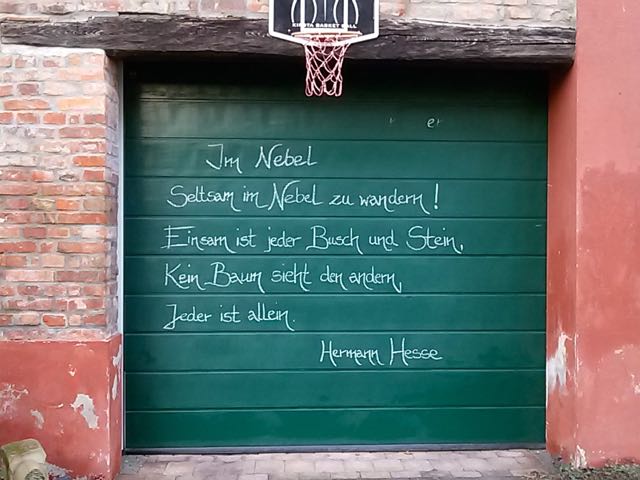 er
Im Nebel
Seltsam im Nebel zu wandern!
Einsam ist jeder Busch und Stein,
Kein Baum sieht den andern,
Jeder ist allein.
Hermann Hesse